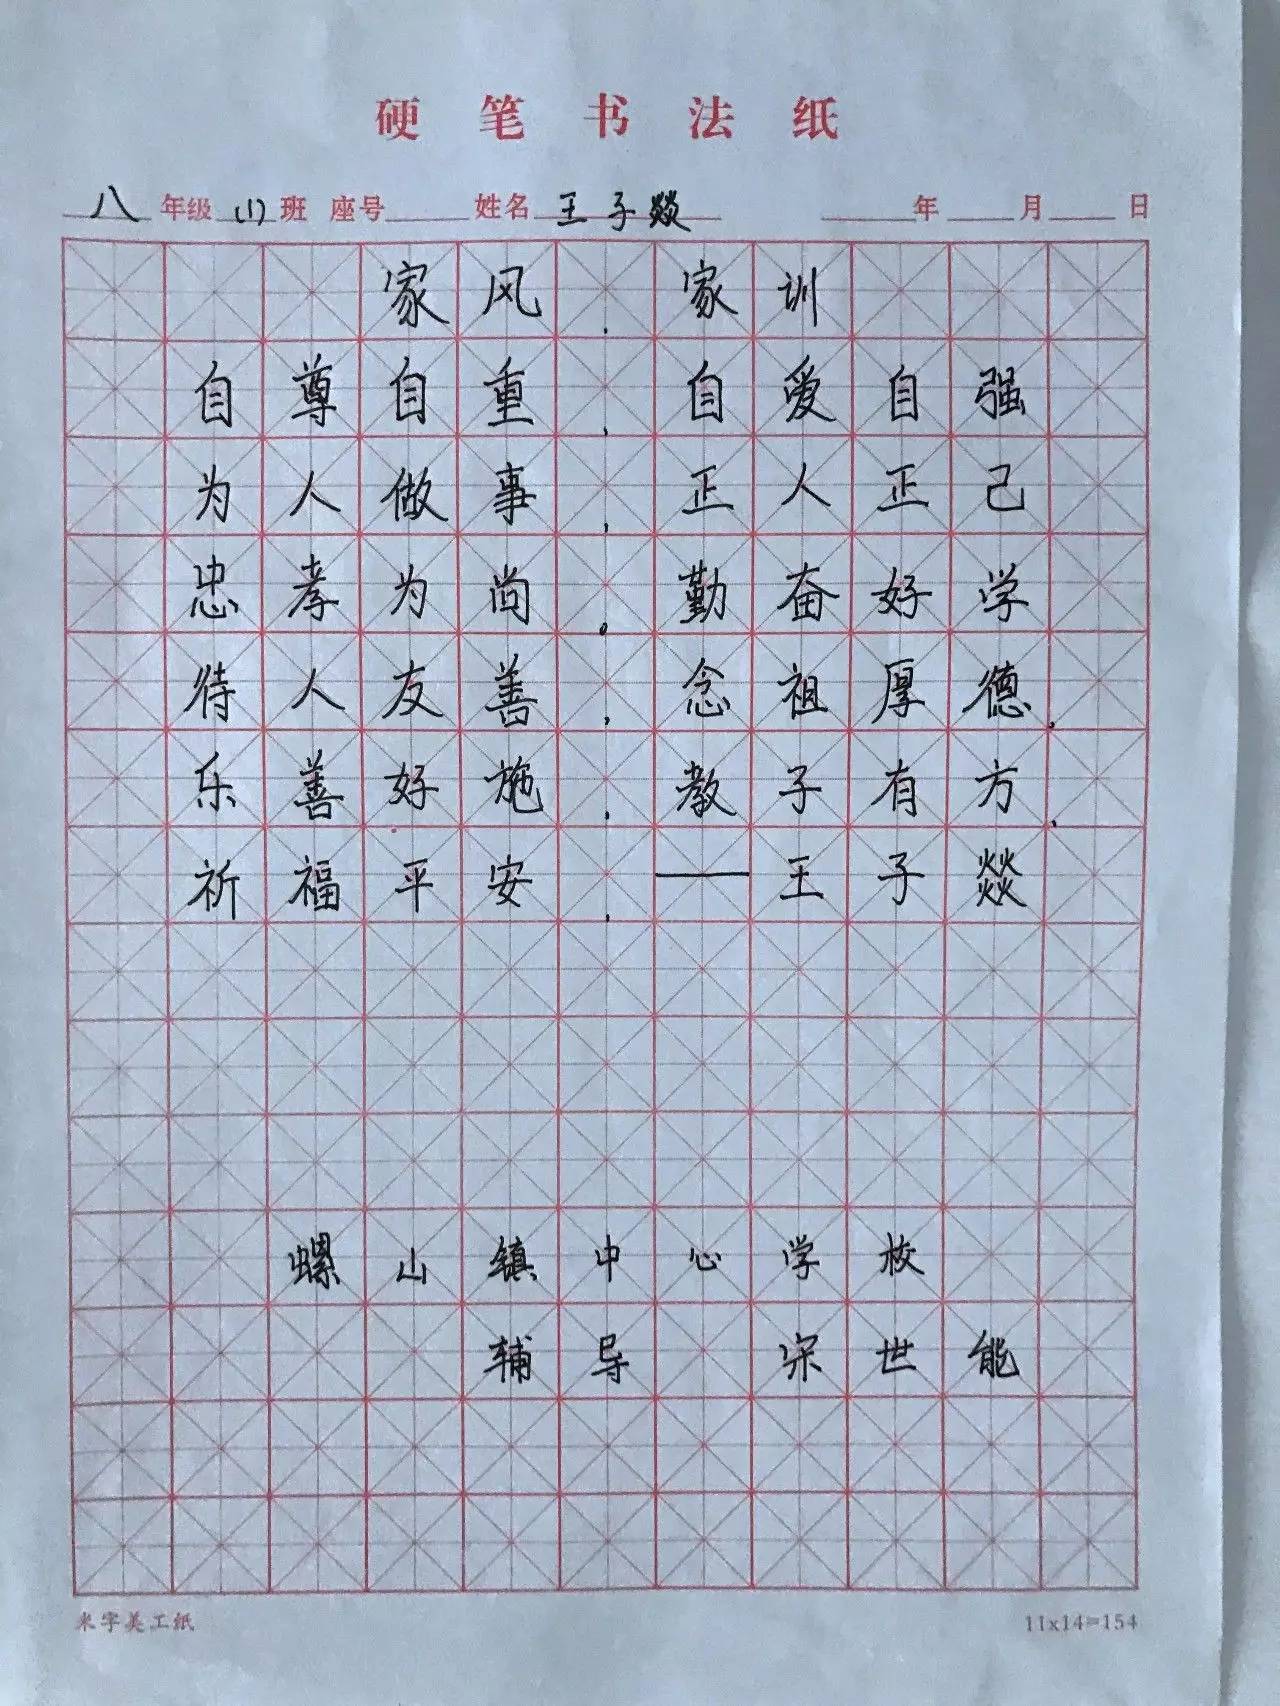 硬笔书法纸
八年级(1)班 座号 姓名王子燚 年 月 日
家风.家训
自尊自重,自爱自强
为人做事,正人正己
忠孝为尚。勤奋好学
待人友善,念祖厚德.
乐善好施.教子有方.
祈福平安.—王子燚
螺山镇中心学校
辅导 宋世能
米字美工纸 11x14=154